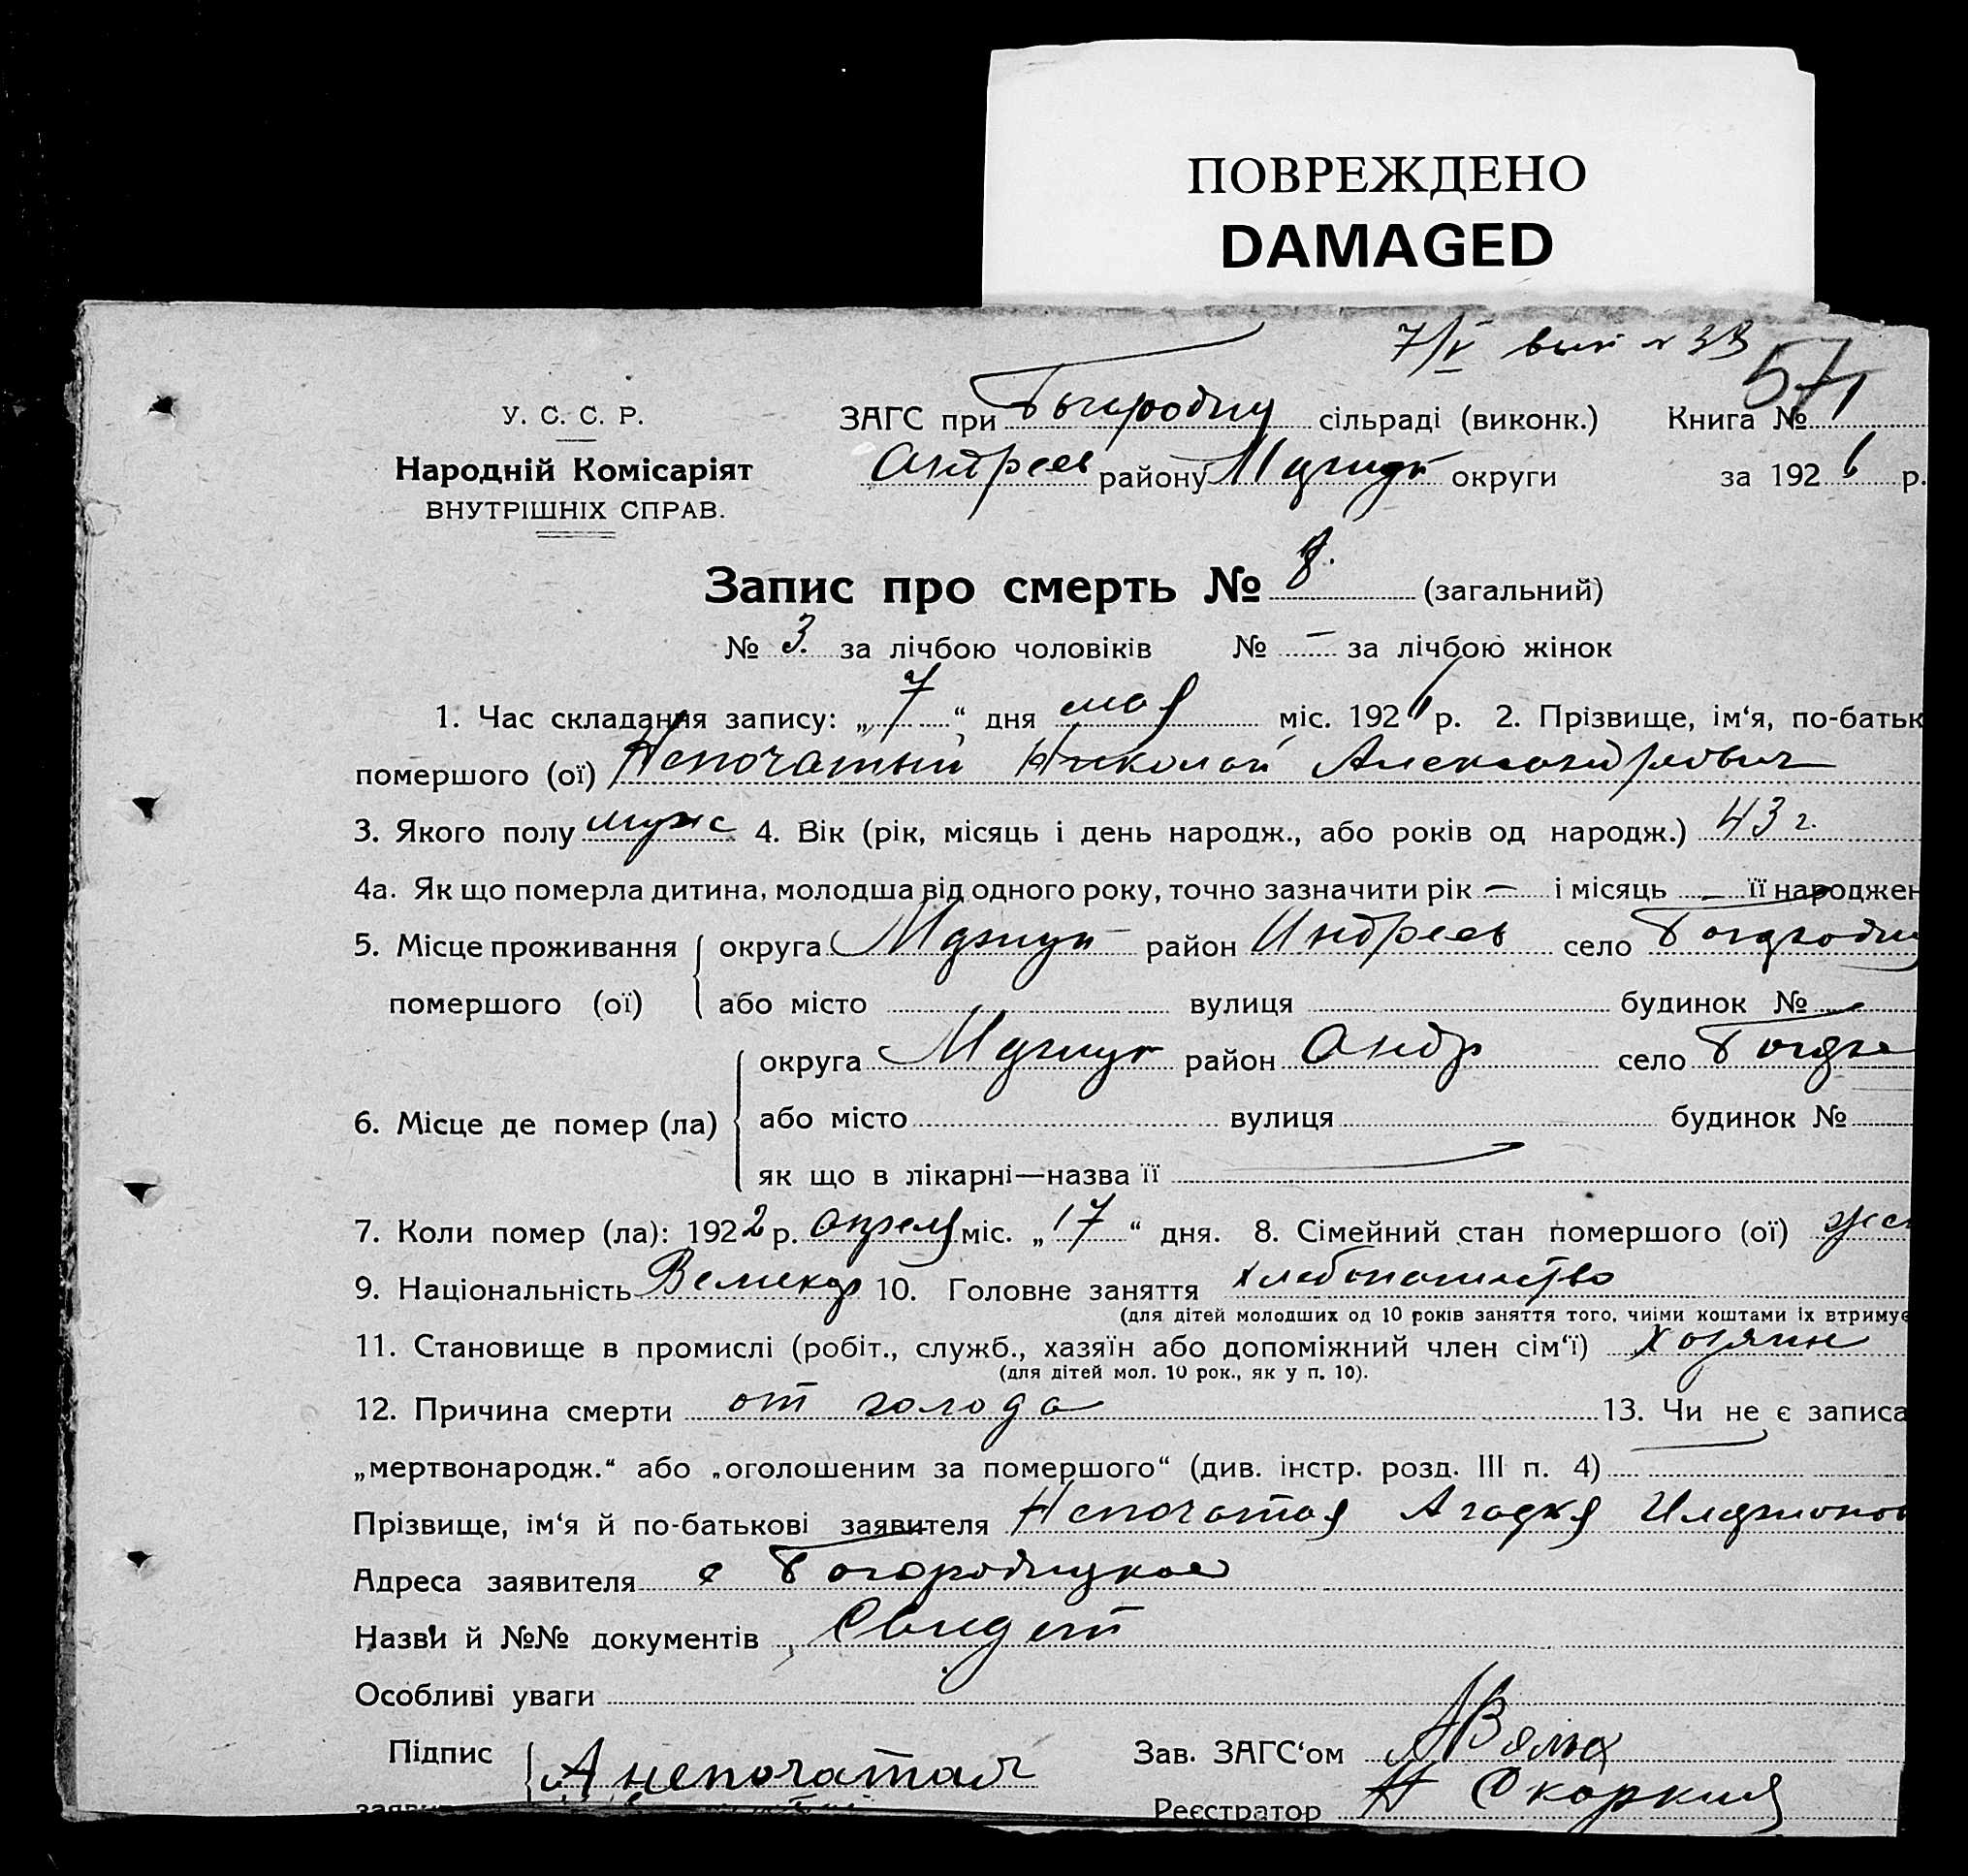 ПОВРЕЖДЕНО
DAMAGED
57
У. С. С. Р.
ЗАГС при сільраді (виконк.) Книга №
Народній Комісаріят
Андреев району округи за 1926 р.
ВНУТРІШНІХ СПРАВ.
Запис про смерть № 8. (загальний)
№ 3. за лічбою чоловіків № — за лічбою жінок
1. Час складання запису: „7“ дня мая міс. 1926 р. 2. Прізвище, ім‘я, по-батьк
помершого (ої) Непочатый Николай Александрович
3. Якого полу муж 4. Вік (рік, місяць і день народж., або років од народж.) 43 г.
4а. Як що померла дитина, молодша від одного року, точно зазначити рік — і місяць — її народжен
5. Місце проживання округа район Андреев село
помершого (ої) або місто вулиця будинок №
округа район Андр село
6. Місце де помер (ла) або місто вулиця будинок №
як що в лікарні—назва її
7. Коли помер (ла): 1922 р. апреля міс. „17“ дня. 8. Сімейний стан помершого (ої) жен
9. Національність Великор 10. Головне заняття хлебопашество
(для дітей молодших од 10 років заняття того, чиїми коштами їх втримує
11. Становище в промислі (робіт., служб., хазяїн або допоміжний член сім‘ї) хозяин
(для дітей мол. 10 рок., як у п. 10).
12. Причина смерти от голода 13. Чи не є записа
„мертвонародж.“ або „оголошеним за помершого“ (див. інстр. розд. III п. 4)
Прізвище, ім‘я й по-батькові заявителя Непочатая
Адреса заявителя с Богородицкое
Назви й №№ документів Свидет
Особливі уваги
Підпис А Непочатая Зав. ЗАГС‘ом
Реєстратор